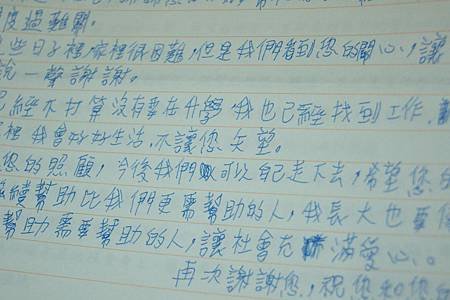 度過難關。
些日子裡家裡很困難,但是我們看到您的關心,讓
說一聲謝謝。
已經不打算沒有要在升學 我也已經找到工作,
裡 我會好好生活,不讓您失望。
您的照顧,今後我們可以自己走下去,希望您
續幫助比我們更需幫助的人,我長大也要
幫助需要幫助的人,讓社會充滿愛心。
再次謝謝您,祝您和您